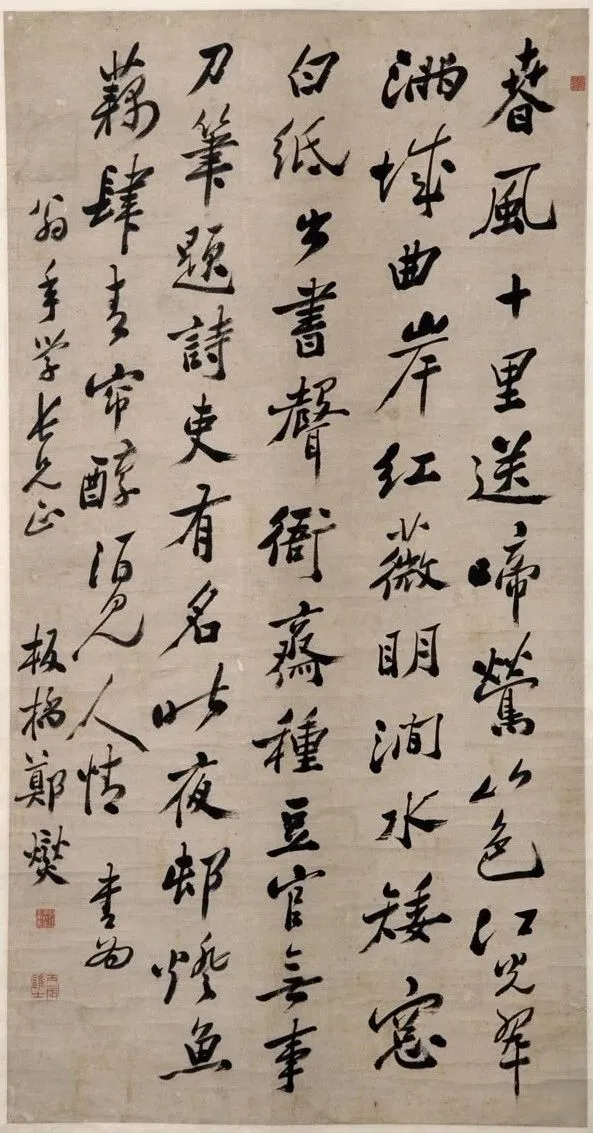 春風十里送啼鶯山色江光翠
滿城曲岸紅薇明澗水矮窓
白紙出書聲衙齋種豆官無事
刀筆題詩吏有名昨夜邨燈魚
藕肆青帘醇酒見人情 書為
翁年学长兄正 板橋鄭燮